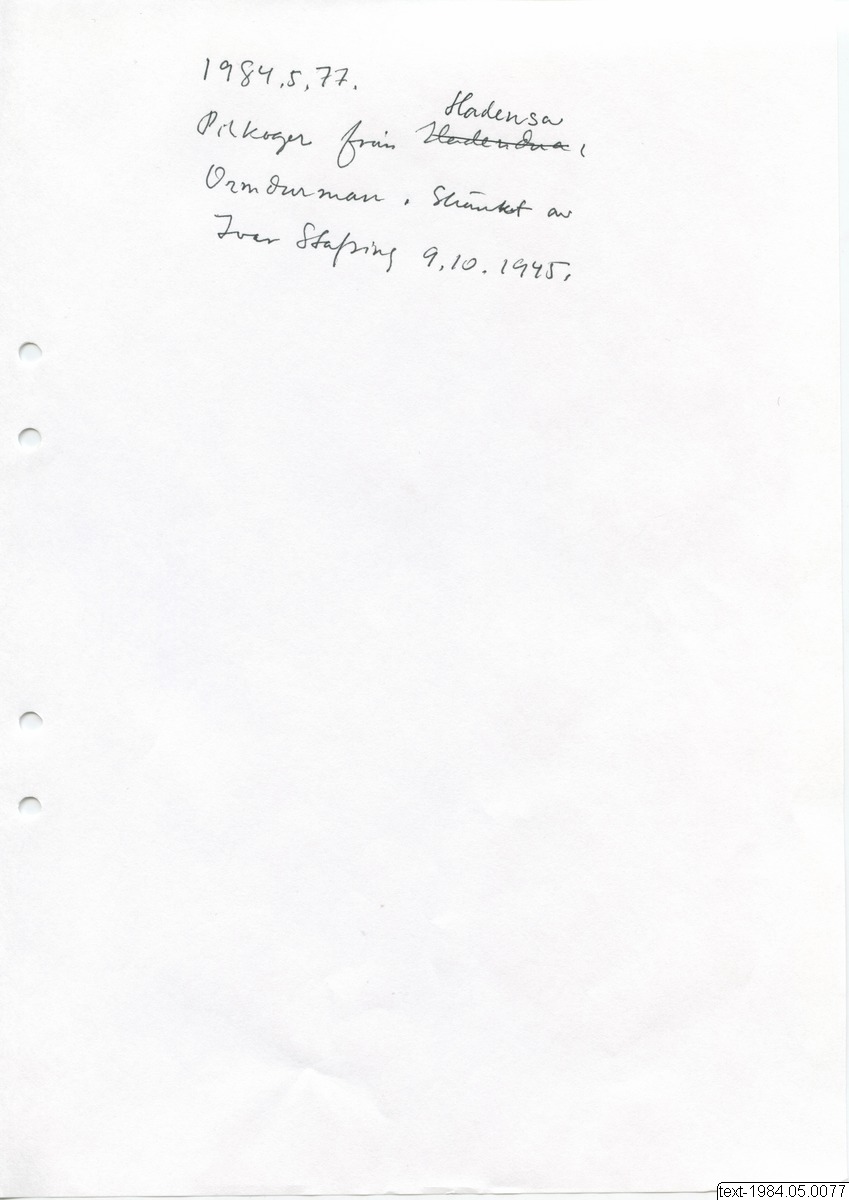 1984.5.77.
Hadensa
Pilkoger från Hadendua,
Omdurman. Skänkt av
Ivar 9.10.1945.
text-1984.05.0077